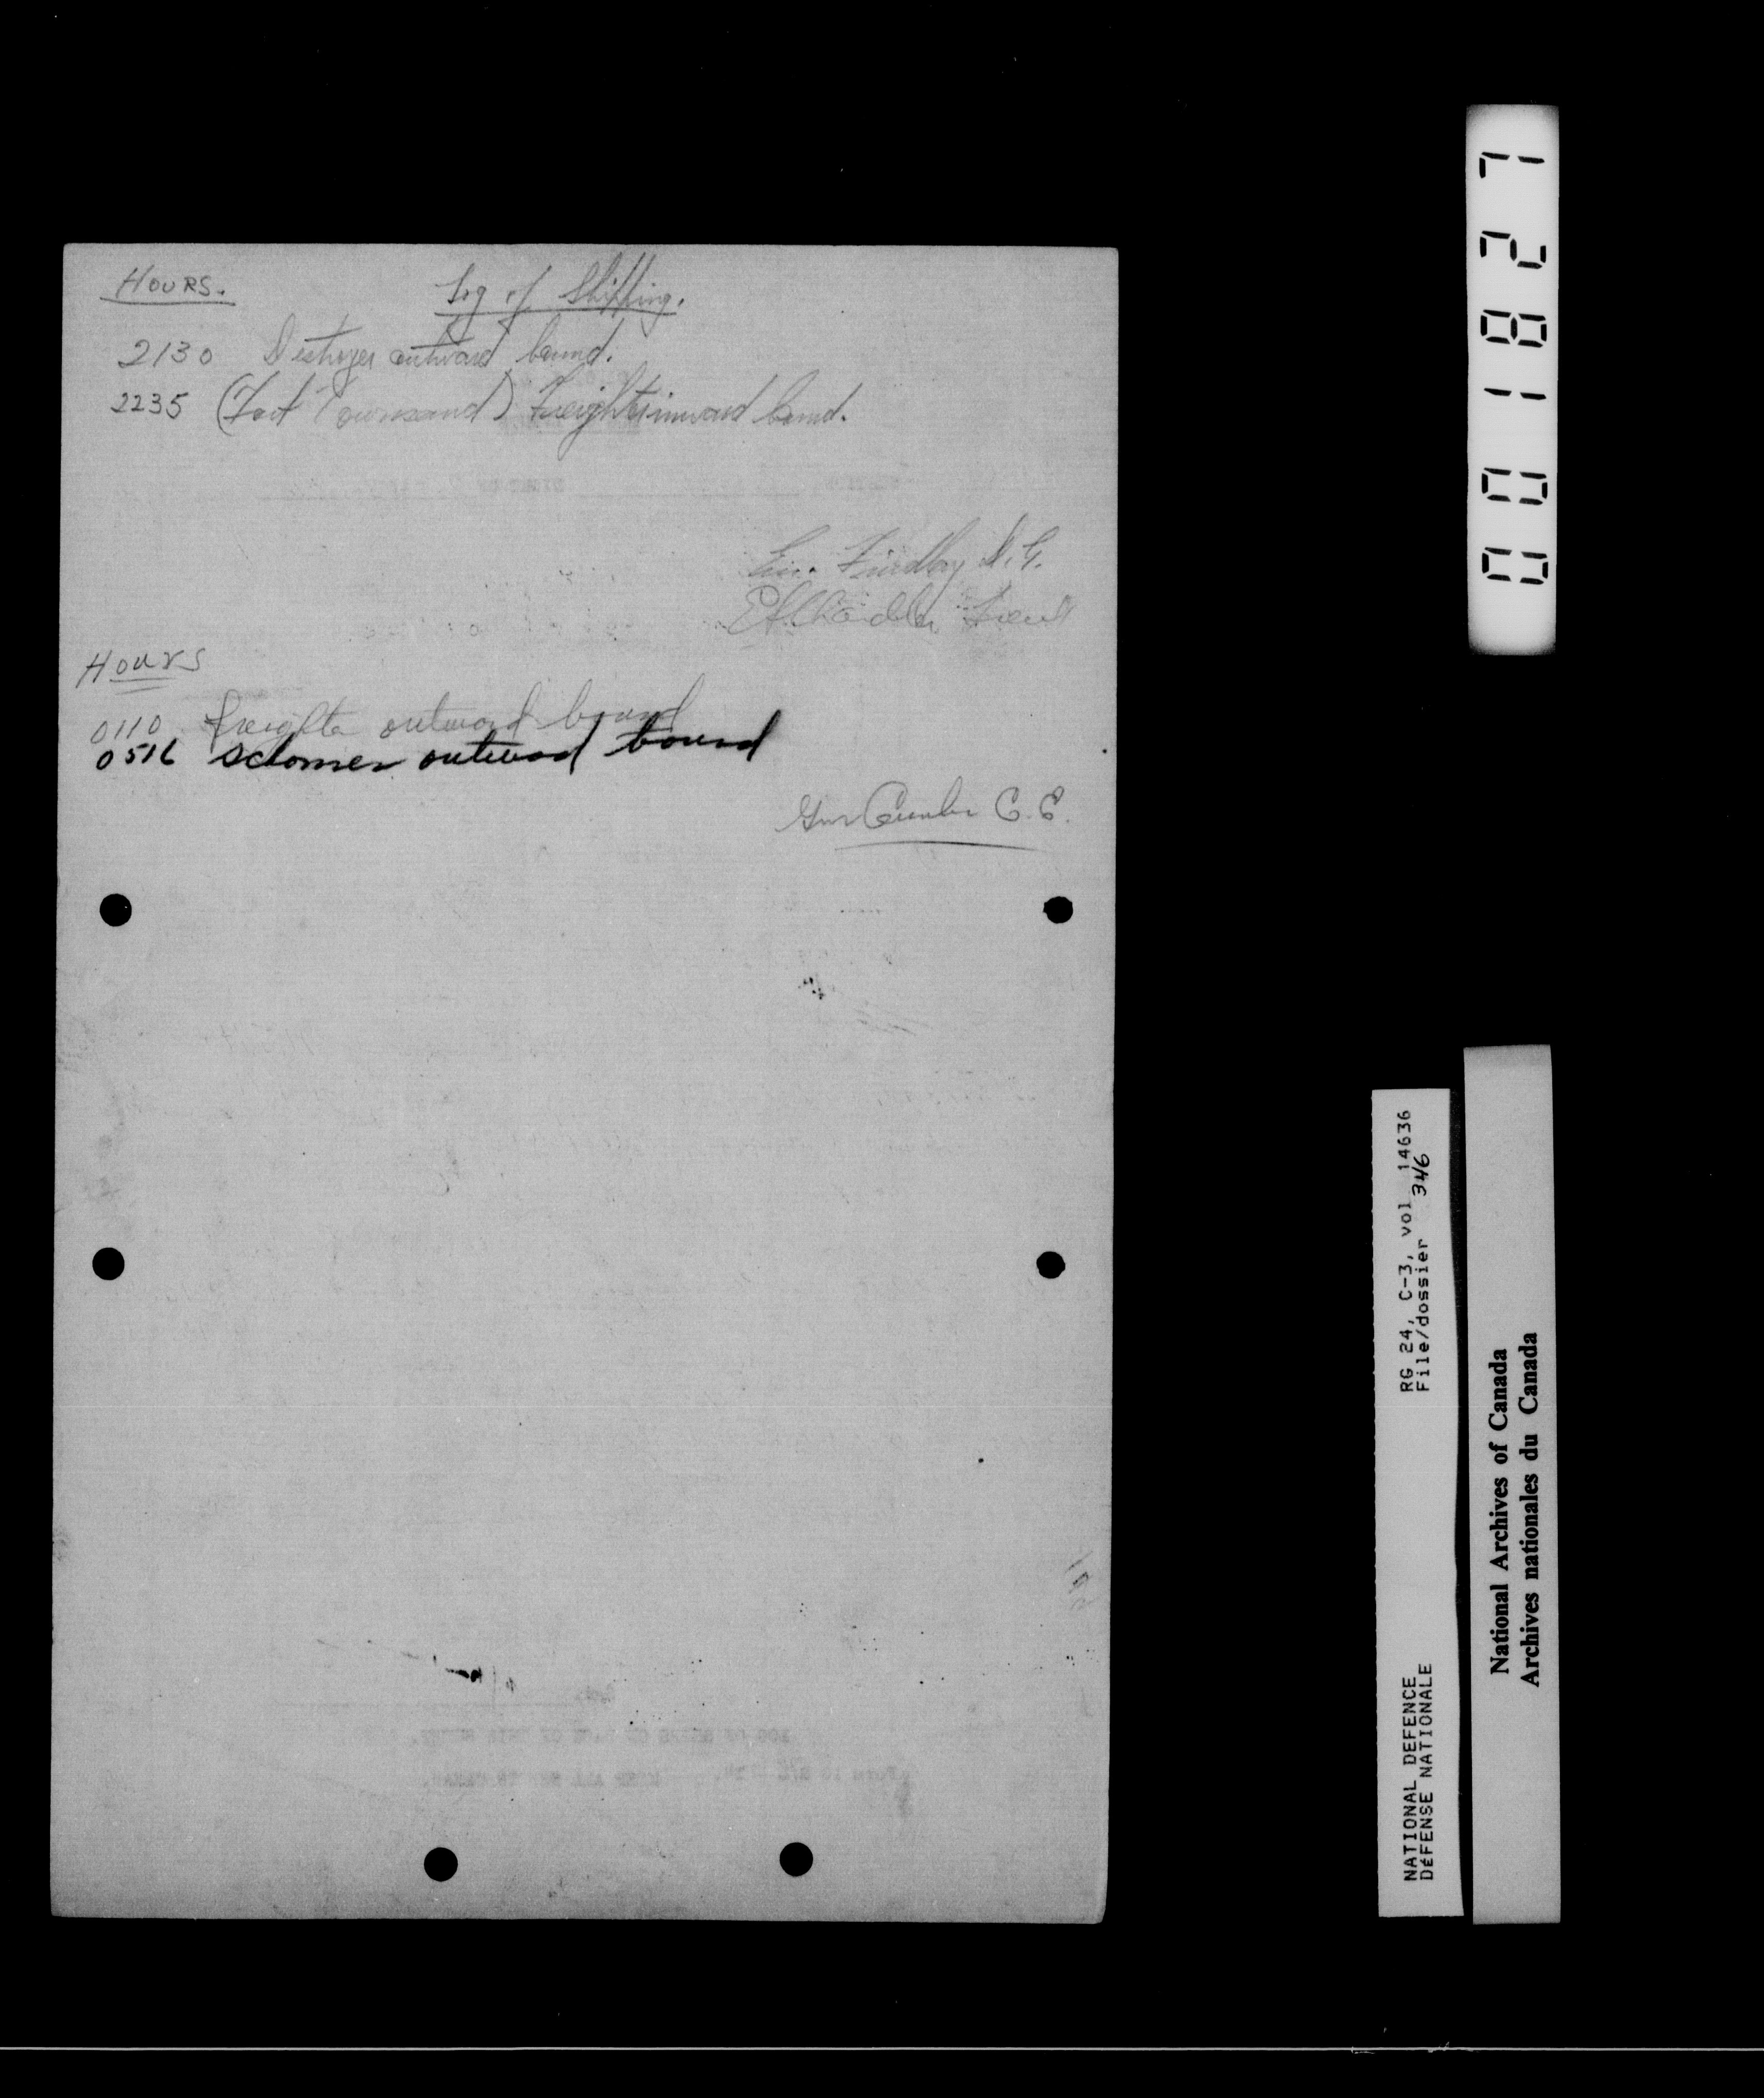 HOURS. Log of Shipping.
2130 Destroyer outward bound.
2235 (Fort Townsend) Freighter inward bound.
Findlay
Lieut
Hours
0110 freighter outward bound
0516 Schoner outward bound
Gnr
001827
RG 24, C-3, vol 14636
File/dossier 346
NATIONAL DEFENCE
DÉFENSE NATIONALE
National Archives of Canada
Archives nationales du Canada